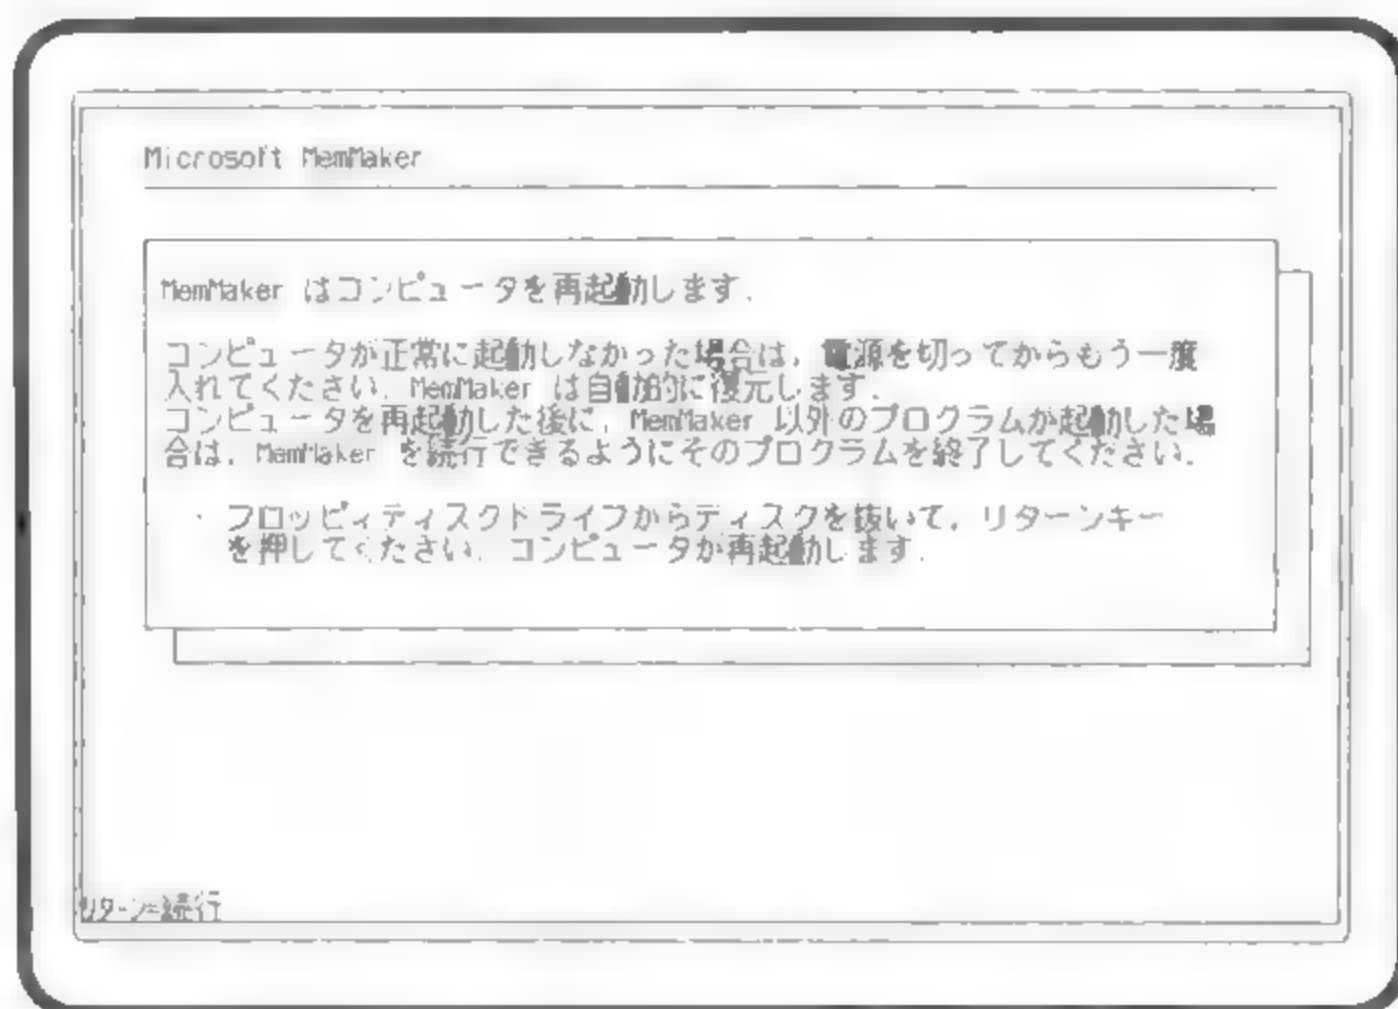 Microsoft MemMaker
MemMaker はコンピュータを再起動します．
コンピュータが正常に起動しなかった場合は，電源を切ってからもう一度
入れてください．MemMaker は自動的に復元します．
コンピュータを再起動した後に，MemMaker 以外のプログラムが起動した場
合は，MemMaker を続行できるようにそのプログラムを終了してください．
・ フロッピィディスクドライブからディスクを抜いて，リターンキー
を押してください．コンピュータが再起動します．
リターン=続行